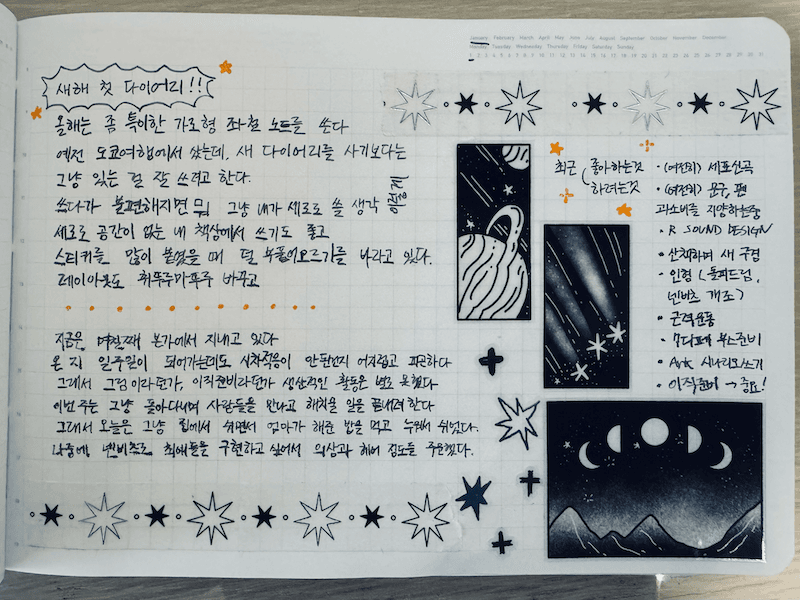 January February March April May June July August September October November December
Monday Tuesday Wednesday Thursday Friday Saturday Sunday
1 2 3 4 5 6 7 8 9 10 11 12 13 14 15 16 17 18 19 20 21 22 23 24 25 26 27 28 29 30 31
새해 첫 다이어리!!
올해는 좀 특이한 가로형 좌철 노트를 쓴다
예전 도쿄여행에서 샀는데, 새 다이어리를 사기보다는
그냥 있는 걸 잘 쓰려고 한다.
쓰다가 불편해지면 뭐 그냥 내가 세로로 쓸 생각
이렇게
세로로 공간이 없는 내 책상에서 쓰기도 좋고
스티커를 많이 붙였을 때 덜 부풀어오르기를 바라고 있다.
레이아웃도 휘뚜루마뚜루 바꾸고
지금은 며칠째 본가에서 지내고 있다
온 지 일주일이 되어가는데도 시차적응이 안된건지 어지럽고 피곤하다
그래서 그림이라던가, 이직준비라던가 생산적인 활동은 별로 못했다
이번주는 그냥 돌아다니며 사람들을 만나고 해치울 일을 끝내려 한다
그래서 오늘은 그냥 집에서 쉬면서 엄마가 해준 밥을 먹고 누워서 쉬었다.
나중에 넨비츠로 최애들을 구현하고 싶어서 의상과 헤어 정도를 주문했다.
최근 좋아하는것
하려는것
• (여전히) 세포신곡
• (여전히) 문구, 펜
과소비를 지양하는중
• R SOUND DESIGN
• 산책하며 새 구경
• 인형 (돌피드림,
넨비츠 개조)
• 근력운동
• 7디페 부스준비
• Ark 시나리오쓰기
• 이직준비 → 중요!